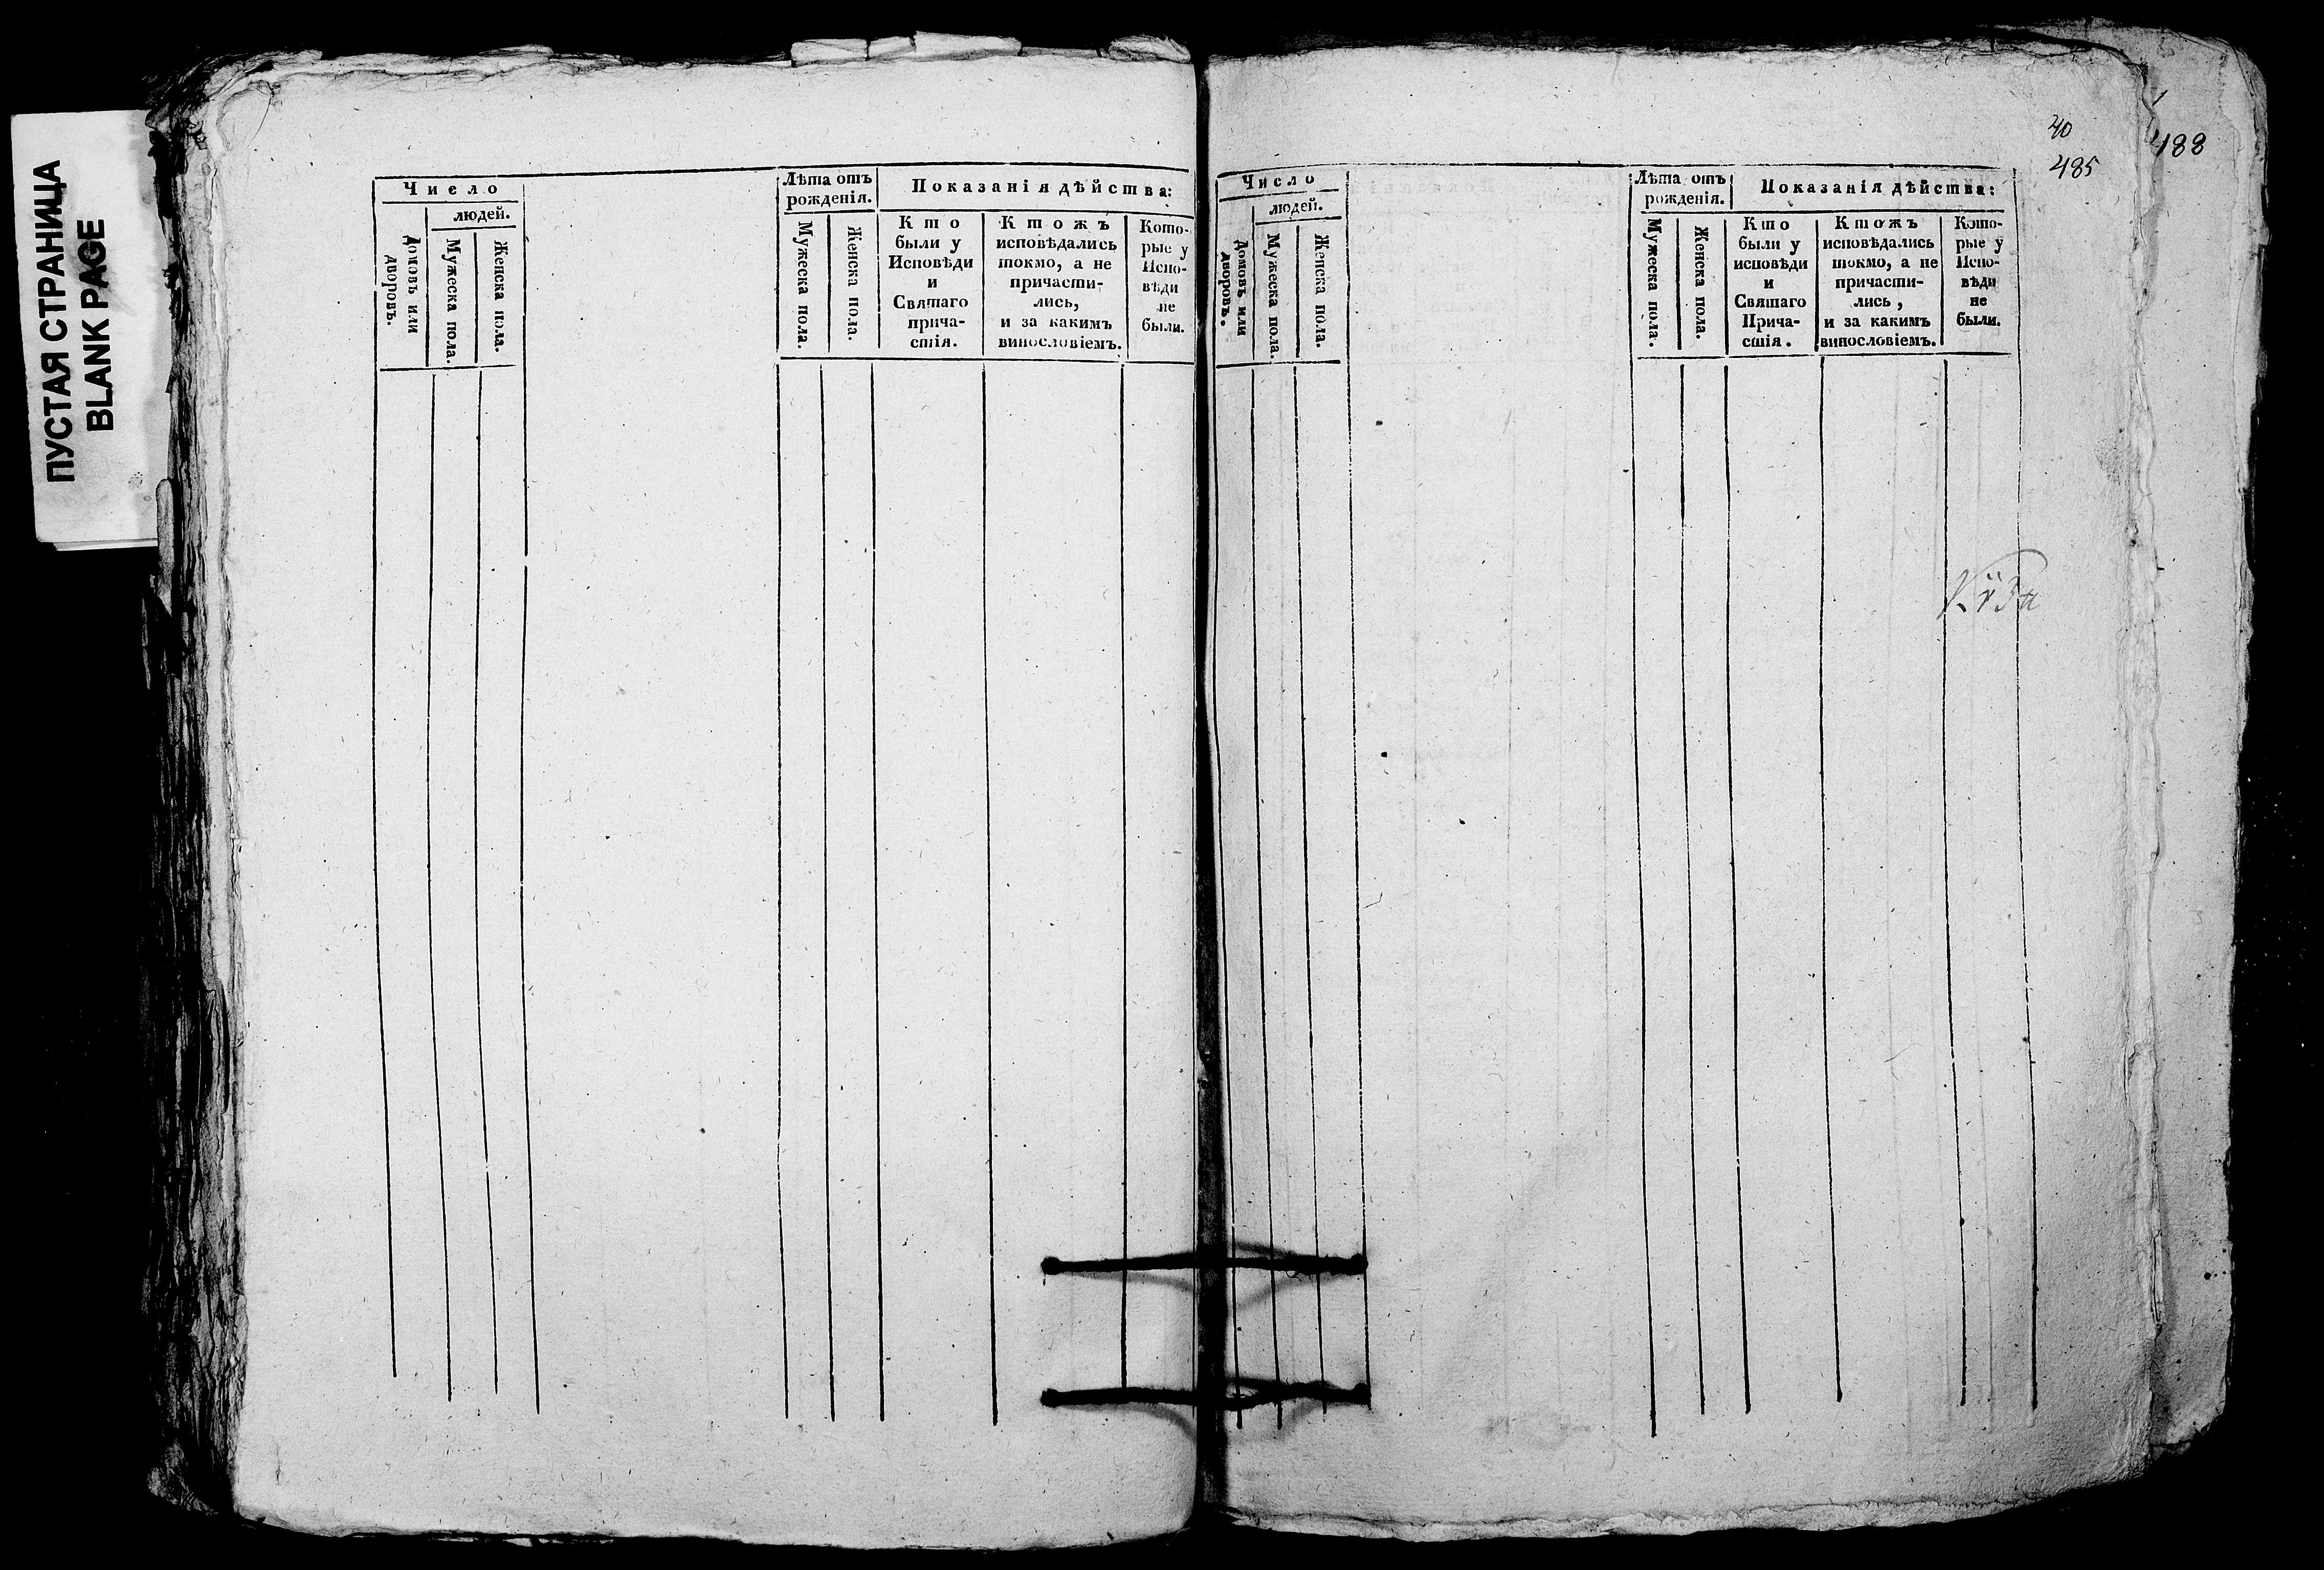 ПУСТАЯ СТРАНИЦА
BLANK PAGE
Число
людей.
Домовъ или
дворовъ.
Мужеска пола.
Женска пола.
Лѣта отъ
рожденія.
Мужеска пола.
Женска пола.
Показанія дѣйства:
Кто
были у
Исповѣди
и
Святаго
прича-
стія.
Ктожъ
исповѣдались
токмо, а не
причасти-
лись,
и за какимъ
винословіемъ.
Кото-
рые у
Испо-
вѣди
не
были.
40
485
488
Число
людей.
Домовъ или
дворовъ.
Мужеска пола.
Женска пола.
Лѣта отъ
рожденія.
Мужеска пола.
Женска пола.
Показанія дѣйства:
Кто
были у
исповѣди
и
Святаго
Прича-
стія.
Ктожъ
исповѣдались
токмо, а не
причасти-
лись,
и за какимъ
винословіемъ.
Кото-
рые у
Испо-
вѣди
не
были.